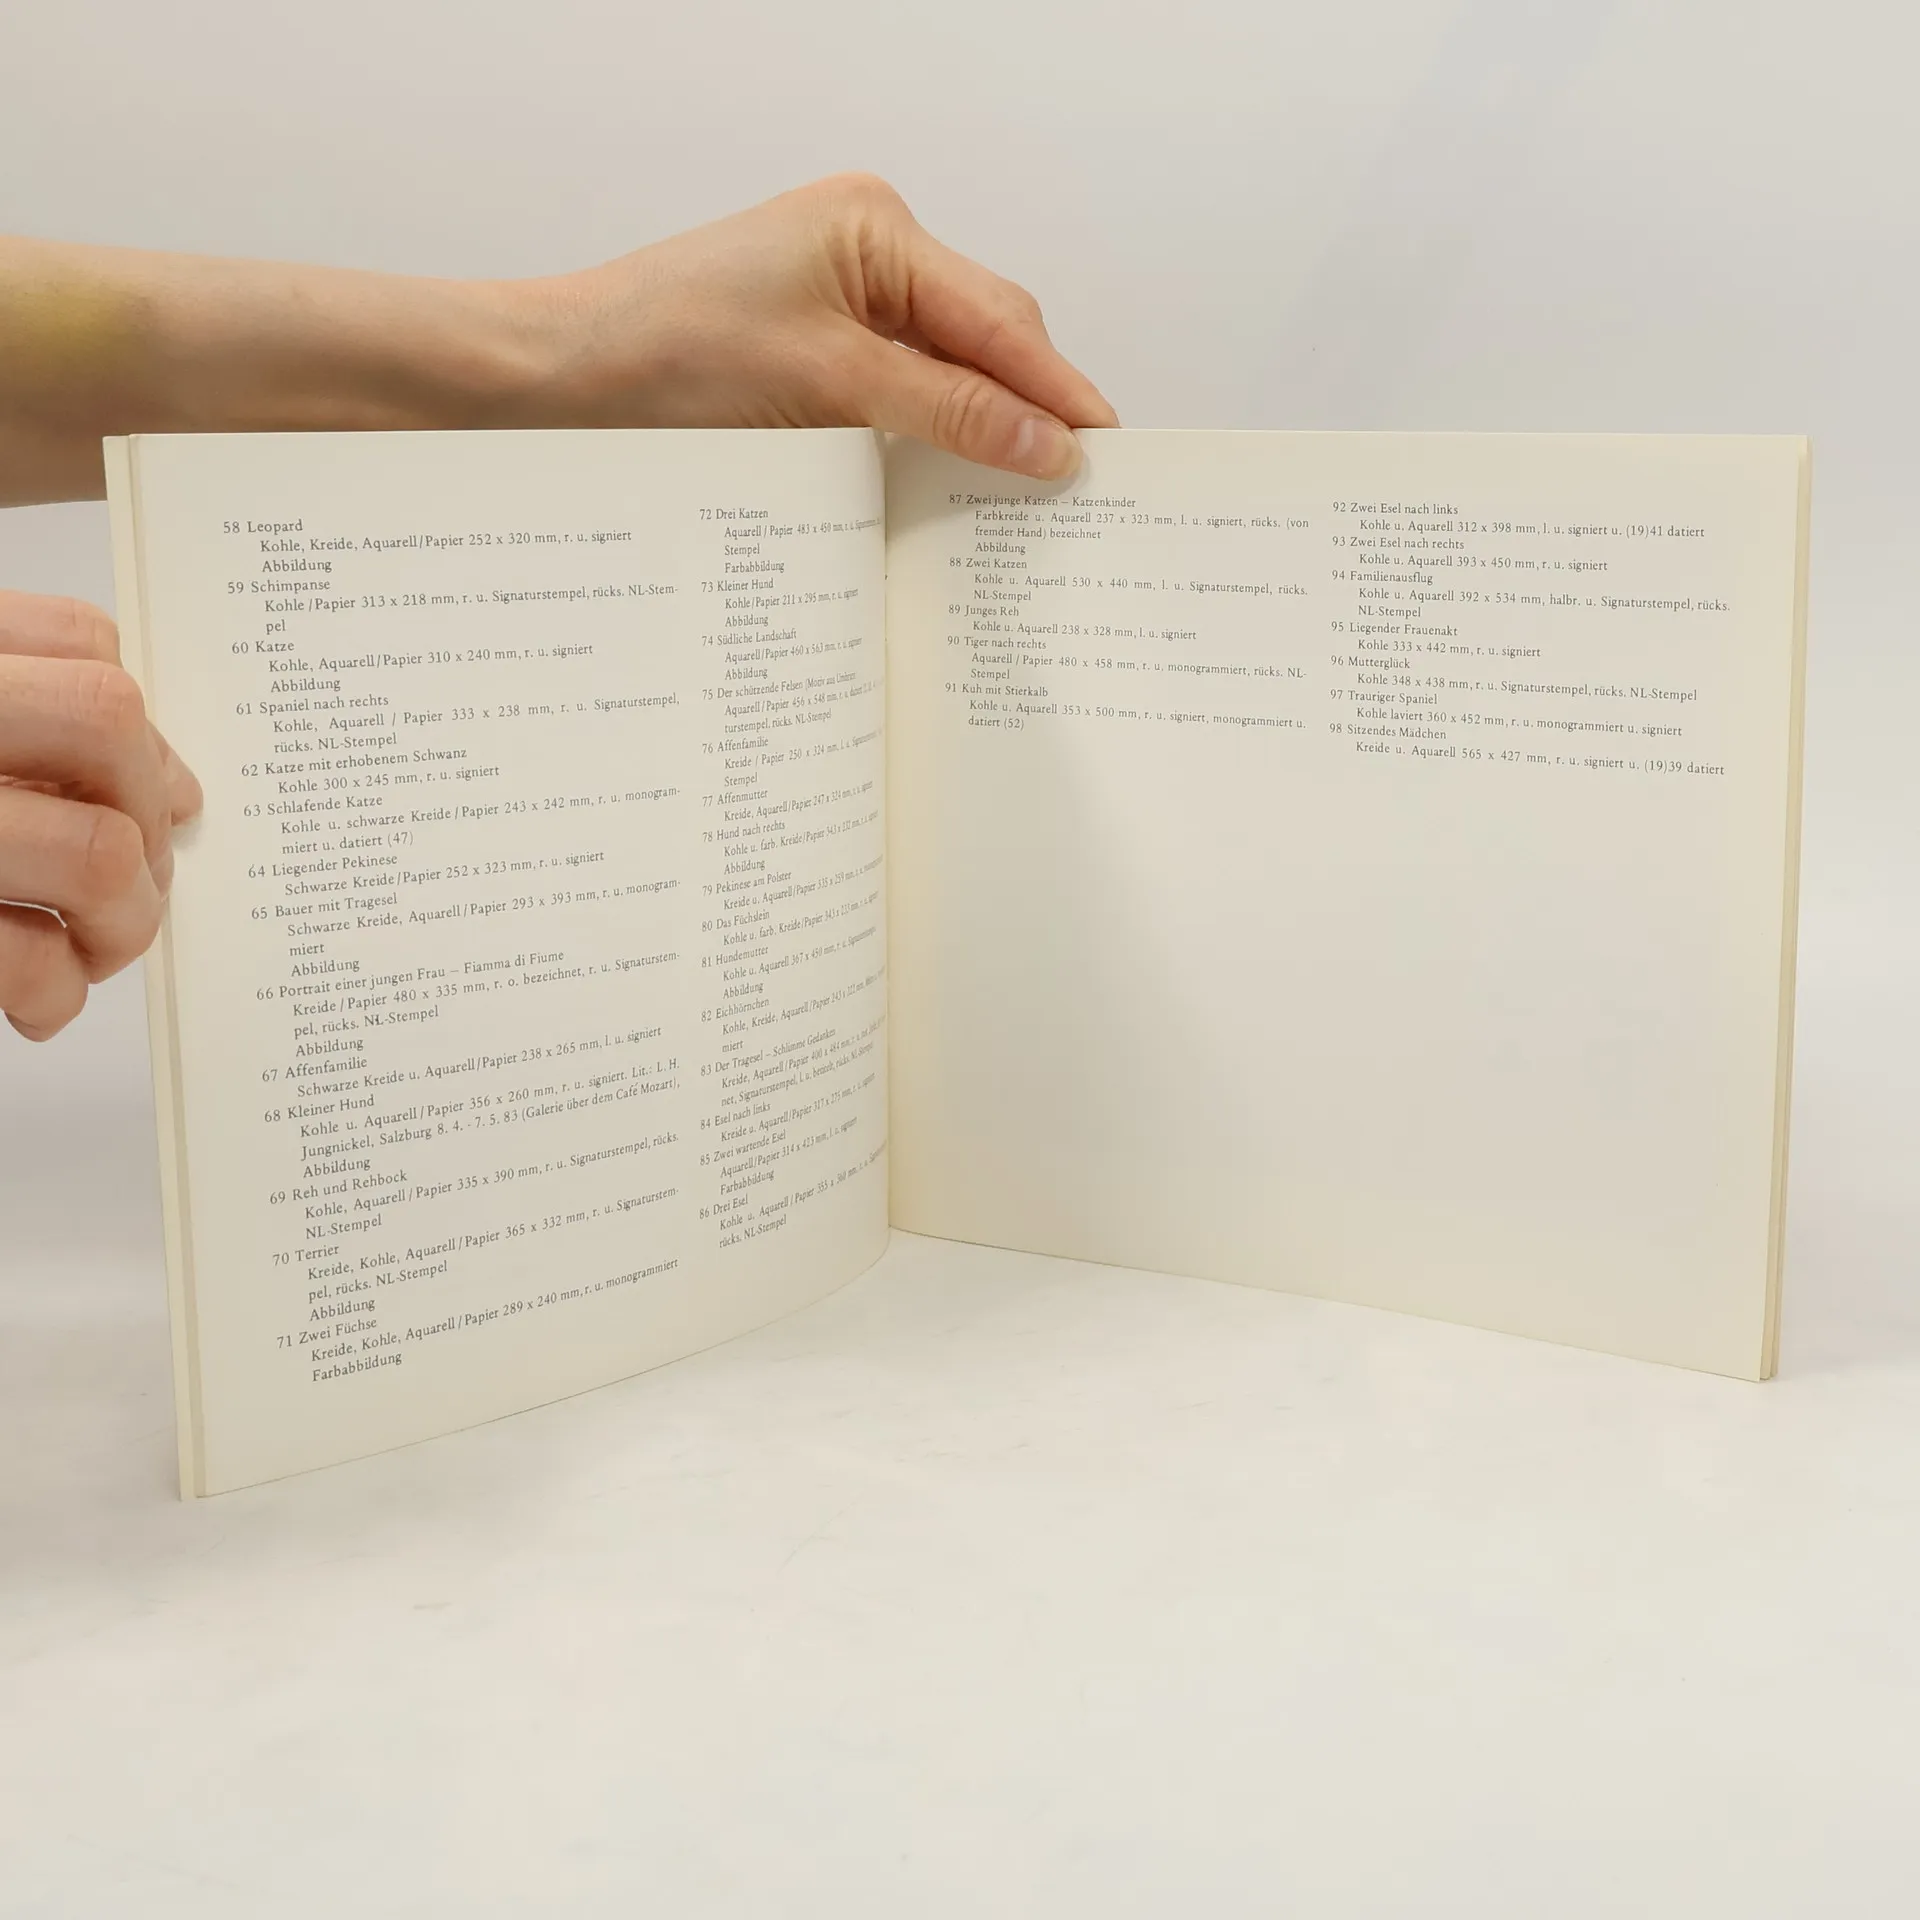 58 Leopard
Kohle, Kreide, Aquarell/Papier 252 x 320 mm, r. u. signiert
Abbildung
59 Schimpanse
Kohle/Papier 313 x 218 mm, r. u. Signaturstempel, rücks. NL-Stem-
pel
60 Katze
Kohle, Aquarell/Papier 310 x 240 mm, r. u. signiert
Abbildung
61 Spaniel nach rechts
Kohle, Aquarell / Papier 333 x 238 mm, r. u. Signaturstempel,
rücks. NL-Stempel
62 Katze mit erhobenem Schwanz
Kohle 300 x 245 mm, r. u. signiert
63 Schlafende Katze
Kohle u. schwarze Kreide/Papier 243 x 242 mm, r. u. monogram-
miert u. datiert (47)
64 Liegender Pekinese
Schwarze Kreide/Papier 252 x 323 mm, r. u. signiert
65 Bauer mit Tragesel
Schwarze Kreide, Aquarell/Papier 293 x 393 mm, r. u. monogram-
miert
Abbildung
66 Portrait einer jungen Frau – Fiamma di Fiume
Kreide/Papier 480 x 335 mm, r. o. bezeichnet, r. u. Signaturstem-
pel, rücks. NL-Stempel
Abbildung
67 Affenfamilie
Schwarze Kreide u. Aquarell/Papier 238 x 265 mm, l. u. signiert
68 Kleiner Hund
Kohle u. Aquarell/Papier 356 x 260 mm, r. u. signiert. Lit.: L. H.
Jungnickel, Salzburg 8. 4. - 7. 5. 83 (Galerie über dem Café Mozart),
Abbildung
69 Reh und Rehbock
Kohle, Aquarell/Papier 335 x 390 mm, r. u. Signaturstempel, rücks.
NL-Stempel
70 Terrier
Kreide, Kohle, Aquarell/Papier 365 x 332 mm, r. u. Signaturstem-
pel, rücks. NL-Stempel
Abbildung
71 Zwei Füchse
Kreide, Kohle, Aquarell/Papier 289 x 240 mm, r. u. monogrammiert
Farbabbildung
72 Drei Katzen
Aquarell/Papier 483 x 450 mm, r. u. Signaturstem
Stempel
Farbabbildung
73 Kleiner Hund
Kohle/Papier 211 x 295 mm, r. u. signiert
Abbildung
74 Südliche Landschaft
Aquarell/Papier 460 x 563 mm, r. u. signiert
Abbildung
75 Der schützende Felsen (Motiv aus Umbrien
Aquarell/Papier 456 x 548 mm, r. u. datiert
turstempel, rücks. NL-Stempel
76 Affenfamilie
Kreide / Papier 250 x 324 mm, l. u.
Stempel
77 Affenmutter
Kreide, Aquarell/Papier 247 x 324 mm, r. u. signiert
78 Hund nach rechts
Kohle u. farb. Kreide/Papier 343 x 232 mm, r. u. signiert
Abbildung
79 Pekinese am Polster
Kreide u. Aquarell/Papier 335 x 259 mm, r. u.
80 Das Füchslein
Kohle u. farb. Kreide/Papier 343 x 233 mm, r. u. signiert
81 Hundemutter
Kohle u. Aquarell 367 x 450 mm, r. u. Signaturstempel
Abbildung
82 Eichhörnchen
Kohle, Kreide, Aquarell/Papier 243 x 322 mm,
miert
83 Der Tragesel – Schlimme Gedanken
Kreide, Aquarell/Papier 400 x 484 mm, r. u.
net, Signaturstempel, l. u. bezeich., rücks. NL-Stempel
84 Esel nach links
Kreide u. Aquarell/Papier 317 x 275 mm, r. u. signiert
85 Zwei wartende Esel
Aquarell/Papier 314 x 423 mm, l. u. signiert
Farbabbildung
86 Drei Esel
Kohle u. Aquarell / Papier 353 x 360 mm, r. u.
rücks. NL-Stempel
87 Zwei junge Katzen – Katzenkinder
Farbkreide u. Aquarell 237 x 323 mm, l. u. signiert, rücks. (von
fremder Hand) bezeichnet
Abbildung
88 Zwei Katzen
Kohle u. Aquarell 530 x 440 mm, l. u. Signaturstempel, rücks.
NL-Stempel
89 Junges Reh
Kohle u. Aquarell 238 x 328 mm, l. u. signiert
90 Tiger nach rechts
Aquarell / Papier 480 x 458 mm, r. u. monogrammiert, rücks. NL-
Stempel
91 Kuh mit Stierkalb
Kohle u. Aquarell 353 x 500 mm, r. u. signiert, monogrammiert u.
datiert (52)
92 Zwei Esel nach links
Kohle u. Aquarell 312 x 398 mm, l. u. signiert u. (19)41 datiert
93 Zwei Esel nach rechts
Kohle u. Aquarell 393 x 450 mm, r. u. signiert
94 Familienausflug
Kohle u. Aquarell 392 x 534 mm, halbr. u. Signaturstempel, rücks.
NL-Stempel
95 Liegender Frauenakt
Kohle 333 x 442 mm, r. u. signiert
96 Mutterglück
Kohle 348 x 438 mm, r. u. Signaturstempel, rücks. NL-Stempel
97 Trauriger Spaniel
Kohle laviert 360 x 452 mm, r. u. monogrammiert u. signiert
98 Sitzendes Mädchen
Kreide u. Aquarell 565 x 427 mm, r. u. signiert u. (19)39 datiert